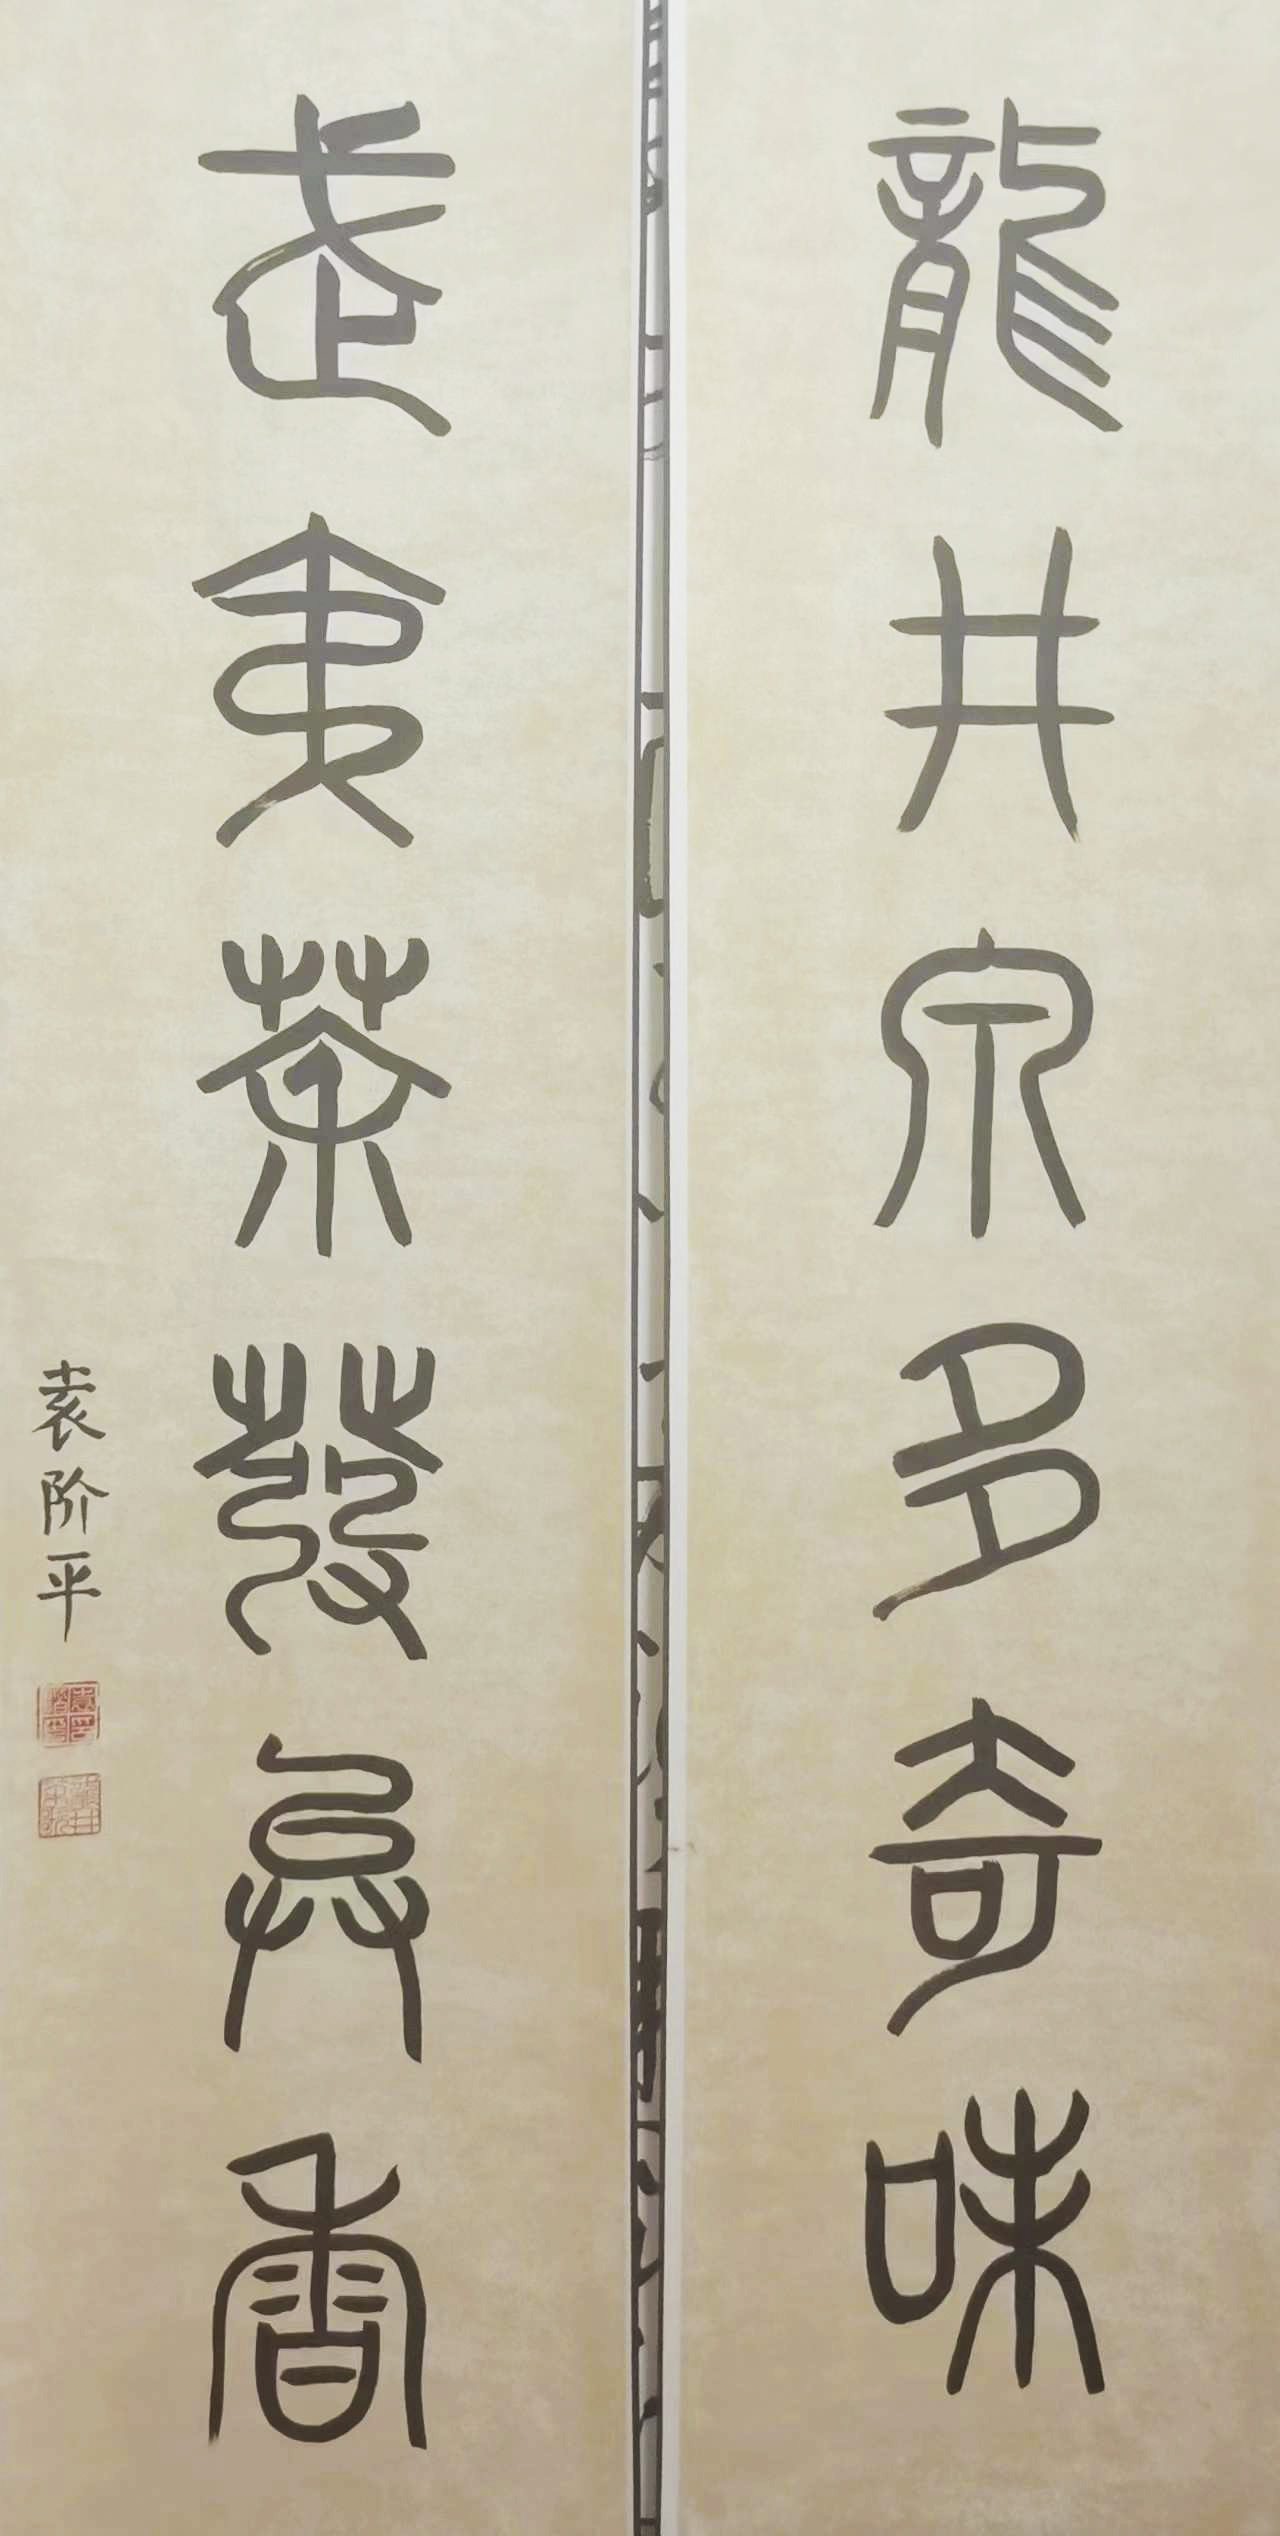 龍井泉多奇味
武夷茶發異香
袁阶平